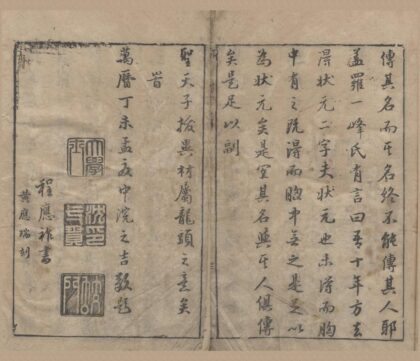 傳其名而其名終不能傳其人耶
蓋羅一峰氏有言曰吾十年方去
得狀元二字夫狀元也未得而胸
中有之既得而胸中無之是足以
為狀元矣是其名與其人俱傳
矣是足以副
聖天子拔異材屬龍頭之意矣
旹
萬曆丁未孟夏中浣之吉敬題
程應祚書
黃應瑞刻